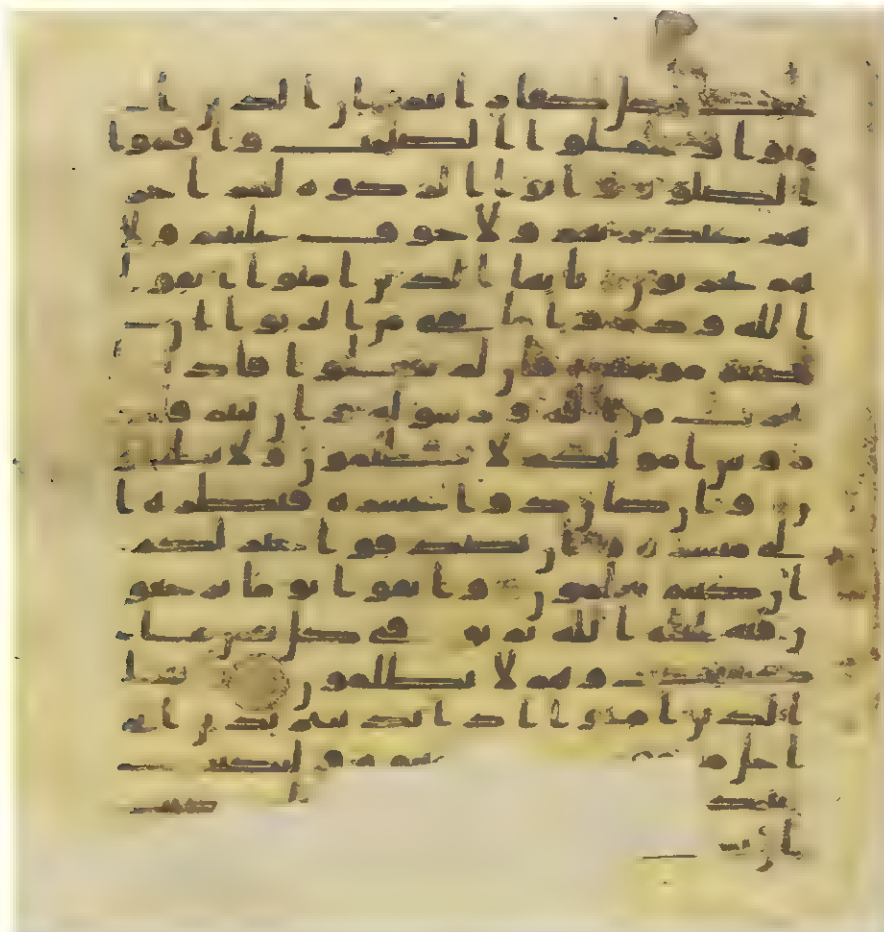 يحب كل كفار اثيم ان الذين ا
منوا وعملوا الصلحت واقموا
الصلوه واتوا الزكوه لهم اجر
هم عند ربهم ولا خوف عليهم ولا
هم يحزنون يايها الذين امنوا اتقوا
الله وذروا ما بقى من الربوا ان
كنتم مومنين فان لم تفعلوا فاذ
نوا بحرب من الله ورسوله وان تبتم فلكم
روس امولكم لا تظلمون ولا تظلمو
ن وان كان ذو عسره فنظره ا
لى ميسره وان تصدقوا خير لكم
ان كنتم تعلمون واتقوا يوما ترجعو
ن فيه الى الله ثم توفى كل نفس ما
كسبت وهم لا يظلمون يا
يها الذين امنوا اذا تداينتم بدين الى
اجل مسمى فاكتبوه وليكتب